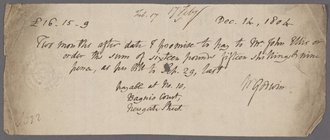 Feb. 17
£16.-15-9 Dec. 14, 1804
Two months after date I promise to pay to Mr. John Ellis or
order the sum of sixteen pounds fifteen shillings & nine
pence, as per bill to Sep. 29, last
payable at No. 10,
Court,
Newgate Street
WGodwin